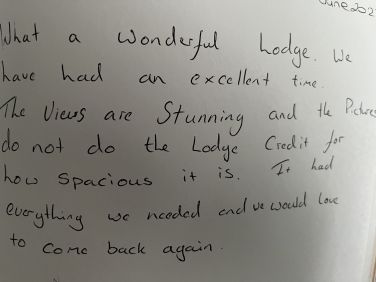 June 202
What a wonderful Lodge. We
have had an excellent time.
The Views are Stunning and the Pictures
do not do the Lodge Credit for
how Spacious it is. It had
everything we needed and we would love
to come back again.